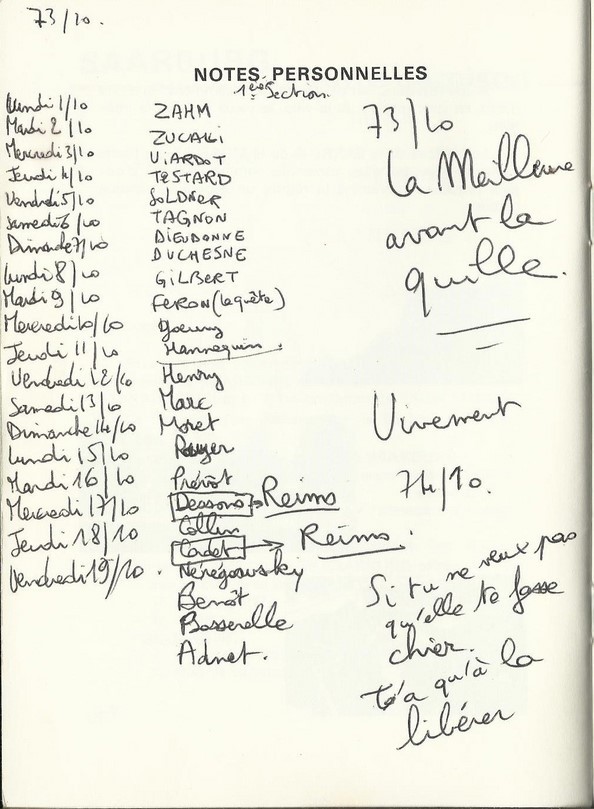 73/10.
NOTES PERSONNELLES
1ère Section
Lundi 1/10
Mardi 2/10
Mercredi 3/10
Jeudi 4/10
Vendredi 5/10
Samedi 6/10
Dimanche 7/10
Lundi 8/10
Mardi 9/10
Mercredi 10/10
Jeudi 11/10
Vendredi 12/10
Samedi 13/10
Dimanche 14/10
Lundi 15/10
Mardi 16/10
Mercredi 17/10
Jeudi 18/10
Vendredi 19/10.
ZAHM
ZUCALLI
VIARDOT
TESTARD
SOLDNER
TAGNON
DIEUDONNE
DUCHESNE
GILBERT
FERON (la quête)
Hannequin.
Henry
Marc
Moret
Royer
Prévôt
Dessons → Reims
Collin
Cadet → Reims.
Nérégowsky
Benoît
Bosserelle
Adnet.
73/10
La Meilleure
avant la
quille.
Vivement
74/10.
Si tu ne veux pas
qu'elle te fasse
chier.
t'a qu'à la
libérer